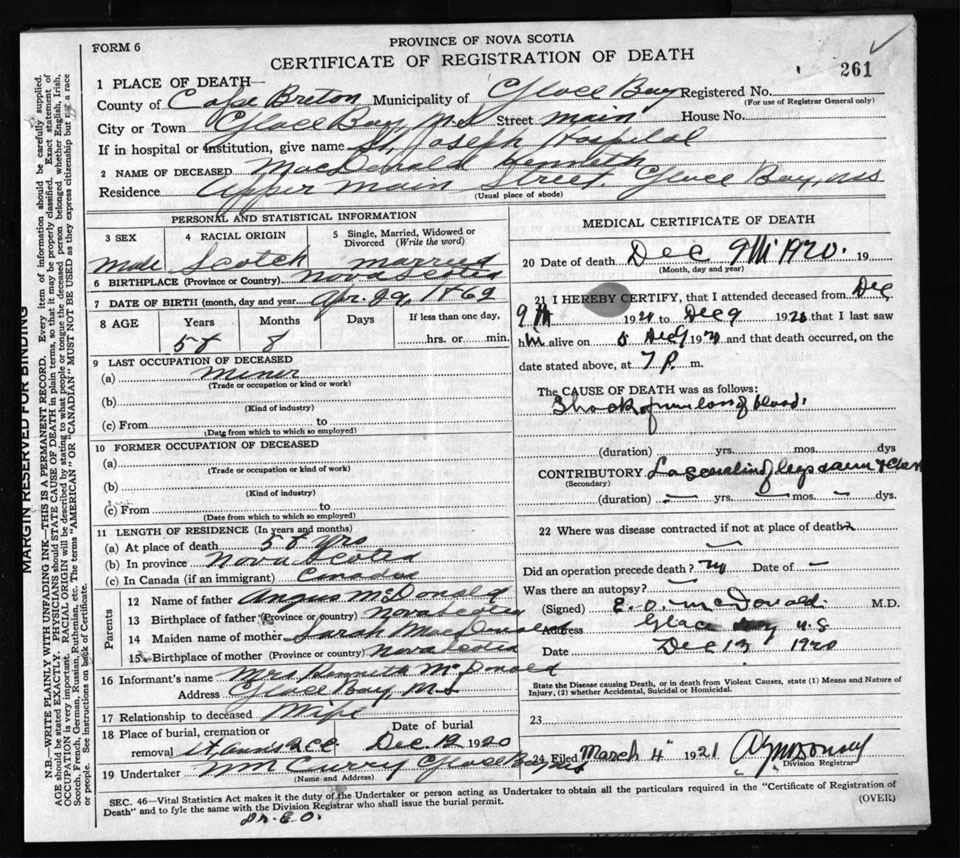 FORM 6
PROVINCE OF NOVA SCOTIA
CERTIFICATE OF REGISTRATION OF DEATH
261
1 PLACE OF DEATH—
County of Cape Breton Municipality of Glace Bay Registered No.
(For use of Registrar General only)
City or Town Glace Bay, N.S Street main House No.
If in hospital or institution, give name St. Joseph Hospital
2 NAME OF DECEASED MacDonald Kenneth
Residence Upper main Street, Glace Bay, N.S
(Usual place of abode)
PERSONAL AND STATISTICAL INFORMATION
3 SEX 4 RACIAL ORIGIN 5 Single, Married, Widowed or Divorced (Write the word)
Male Scotch married
6 BIRTHPLACE (Province or Country) Nova Scotia
7 DATE OF BIRTH (month, day and year) Apr. 29, 1862
8 AGE Years Months Days If less than one day,
58 8 hrs. or min.
9 LAST OCCUPATION OF DECEASED
(a) Miner
(Trade or occupation or kind or work)
(b)
(Kind of industry)
(c) From to
(Data from which to which so employed)
10 FORMER OCCUPATION OF DECEASED
(a)
(Trade or occupation or kind of work)
(b)
(Kind of industry)
(c) From to
(Date from which to which so employed)
11 LENGTH OF RESIDENCE (In years and months)
(a) At place of death 58 yrs
(b) In province Nova Scotia
(c) In Canada (if an immigrant) Canada
Parents
12 Name of father Angus McDonald
13 Birthplace of father (Province or country) Nova Scotia
14 Maiden name of mother Sarah MacDonald
15 Birthplace of mother (Province or country) Nova Scotia
16 Informant's name Mrs Kenneth McDonald
Address Glace Bay, N.S
17 Relationship to deceased Wife
18 Place of burial, cremation or Date of burial
removal St. Anns Dec. 12 1920
19 Undertaker Wm Curry Glace Bay NS
(Name and Address)
MEDICAL CERTIFICATE OF DEATH
20 Date of death Dec 9th 1920. 19
(Month, day and year)
21 I HEREBY CERTIFY, that I attended deceased from Dec
9th 1920 to Dec 9 1920 that I last saw
him alive on Dec 9 1920 and that death occurred, on the
date stated above, at 7 P. m.
The CAUSE OF DEATH was as follows:
Shock from loss of blood.
(duration) yrs. mos. dys
CONTRIBUTORY Laceration of legs &
(Secondary)
(duration) — yrs. — mos. — dys.
22 Where was disease contracted if not at place of death?
Did an operation precede death? no Date of —
Was there an autopsy?
(Signed) E. O. McDonald M.D.
Address Glace Bay N.S
Date Dec 13 1920
State the Disease causing Death, or in death from Violent Causes, state (1) Means and Nature of
Injury, (2) whether Accidental, Suicidal or Homicidal.
23
24 Filed March 4th 1921
Division Registrar
SEC. 46—Vital Statistics Act makes it the duty of the Undertaker or person acting as Undertaker to obtain all the particulars required in the "Certificate of Registration of
Death" and to fyle the same with the Division Registrar who shall issue the burial permit. (OVER)
Dr. E.O.
MARGIN RESERVED FOR BINDING
N.B.—WRITE PLAINLY WITH UNFADING INK—THIS IS A PERMANENT RECORD. Every item of information should be carefully supplied.
AGE should be stated EXACTLY. PHYSICIANS should STATE CAUSE OF DEATH in plain terms, so that it may be properly classified. Exact statement of
OCCUPATION is very important. RACIAL ORIGIN will be described by stating to what people or tongue the deceased person belonged whether English, Irish,
Scotch, French, German, Russian, Ruthenian, etc. The terms "AMERICAN" OR "CANADIAN" MUST NOT BE USED as they express citizenship but not a race
or people. See instructions on back of Certificate.